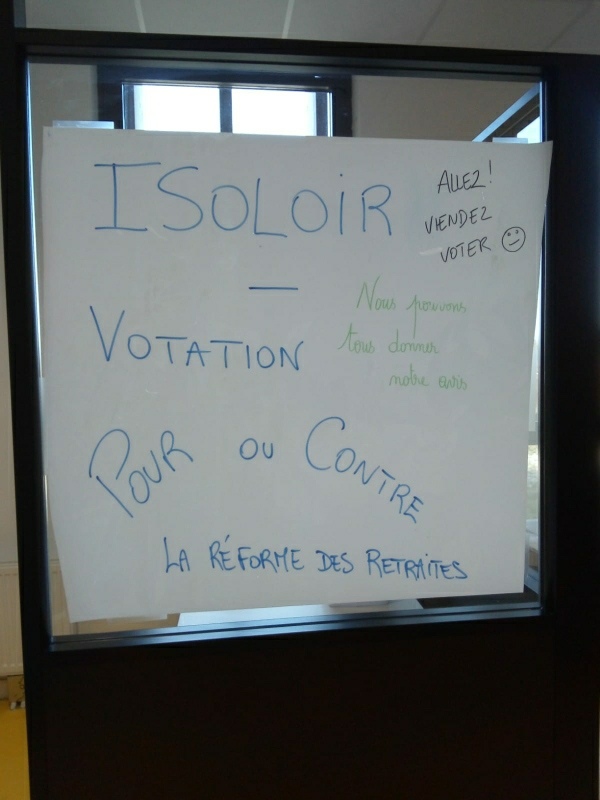 ISOLOIR
ALLEZ!
VIENDEZ
VOTER
—
VOTATION
Nous pouvons
tous donner
notre avis
POUR OU CONTRE
LA RÉFORME DES RETRAITES